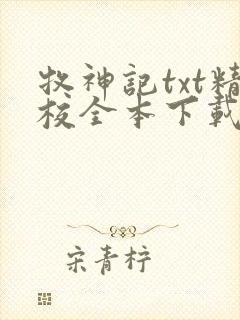 牧神記txt精
校全本下載
宋青柠